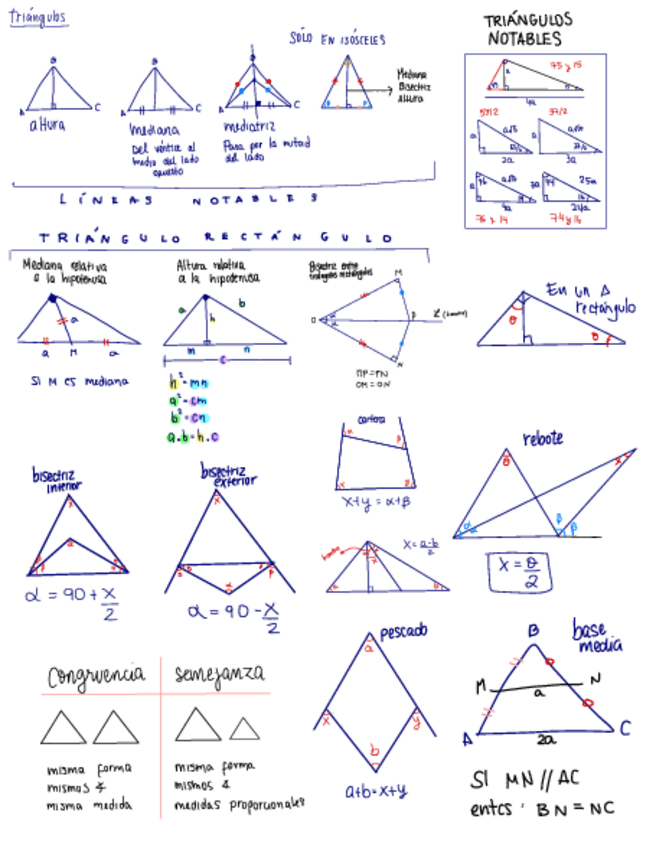 Triángulos
SÓLO EN ISÓSCELES
TRIÁNGULOS
NOTABLES
B
A
C
altura
B
A
C
mediana
Del vértice al
medio del lado
opuesto
B
A
C
mediatriz
Pasa por la mitad
del lado
Mediana
Bisectriz
Altura
75 y 15
4a
53/2
37/2
2a
3a
4a
25a
24a
76 y 14
74 y 16
LÍNEAS NOTABLES
TRIÁNGULO RECTÁNGULO
Mediana relativa
a la hipotenusa
a
a
M
a
SI M es mediana
Altura relativa
a la hipotenusa
a
b
h
m
n
c
h² = mn
a² = cm
b² = cn
a.b = h.c
Bisectriz entre
triángulos rectángulos
M
O
P
N
MP = PN
OM = ON
En un Δ
rectángulo
θ
θ
bisectriz
interior
x
α
α = 90 + x/2
bisectriz
exterior
x
α
α = 90 - x/2
α
β
x
x+y = α+β
x = a-b/2
rebote
θ
x
β
β
x = θ/2
congruencia
misma forma
mismos ∡
misma medida
semejanza
misma forma
mismos ∡
medidas proporcionales
pescado
a
x
y
b
a+b = x+y
base
media
B
M
N
a
A
C
2a
SI MN // AC
entcs: BN = NC